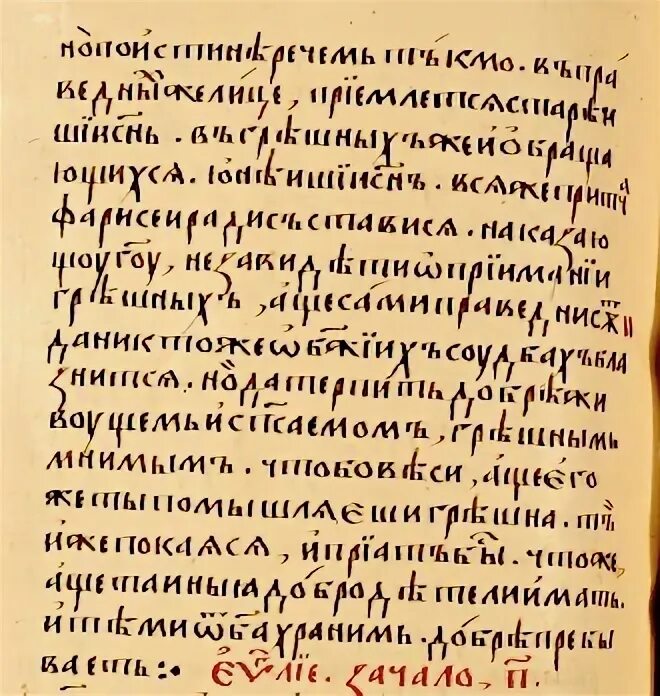 но̀ пои́стинѣ речемь тъ́кмо . въ пра
ведны́х же лице , прїемлетсѧ старѣи
шїи сн҃ь . въ грѣшных ъ же и҆ ѡ҆браща
ющихсѧ . ю҆нѣишїи сн҃ъ . всѧ же прит ча
фарисеи ради състависѧ . наказаю
щоу гд҃оу , не завидѣти ѡ҆ прїиманїи
грѣшныхъ , а҆ще сами праведни сѫт
да никтоже ѡ҆ бж҃їихъ соудбахъ бла
знитсѧ . но̀ да терпить добрѣ жи
воущемь и҆ сп҃саемомъ , грѣшнымь
мнимымъ . что бо вѣси , а҆ще е҆го
же ты помышлѧеши грѣшна . тъ̀
и҆же покаѧсѧ , и҆ прїатъ бы́ . что же ,
а҆ще таиныѧ добродѣтели и҆мать .
и҆ тѣми ѿ бг҃а хранимь . добрѣ пребы
ваеть :·
е҆ѵⷢ҇лїе . зачало , п҃ .